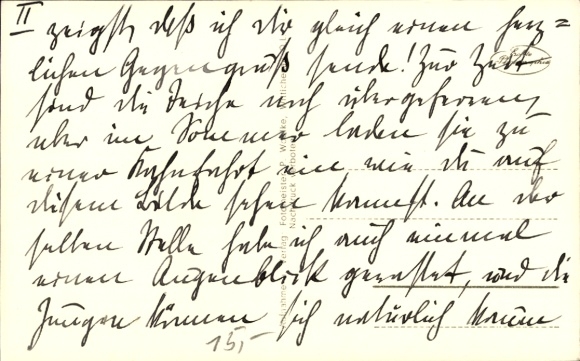 II zeigst, daß ich dir gleich einen herz=
lichen Gegengruß sende! Zur Zeit
sind die Teiche noch übergefroren,
aber im Sommer laden sie zu
einer Kahnfahrt ein, wie du auf
diesem Bilde sehen kannst. An der
selben Stelle habe ich auch einmal
einen Augenblick gerastet, und die
Jungen können sich natürlich kaum
15,-